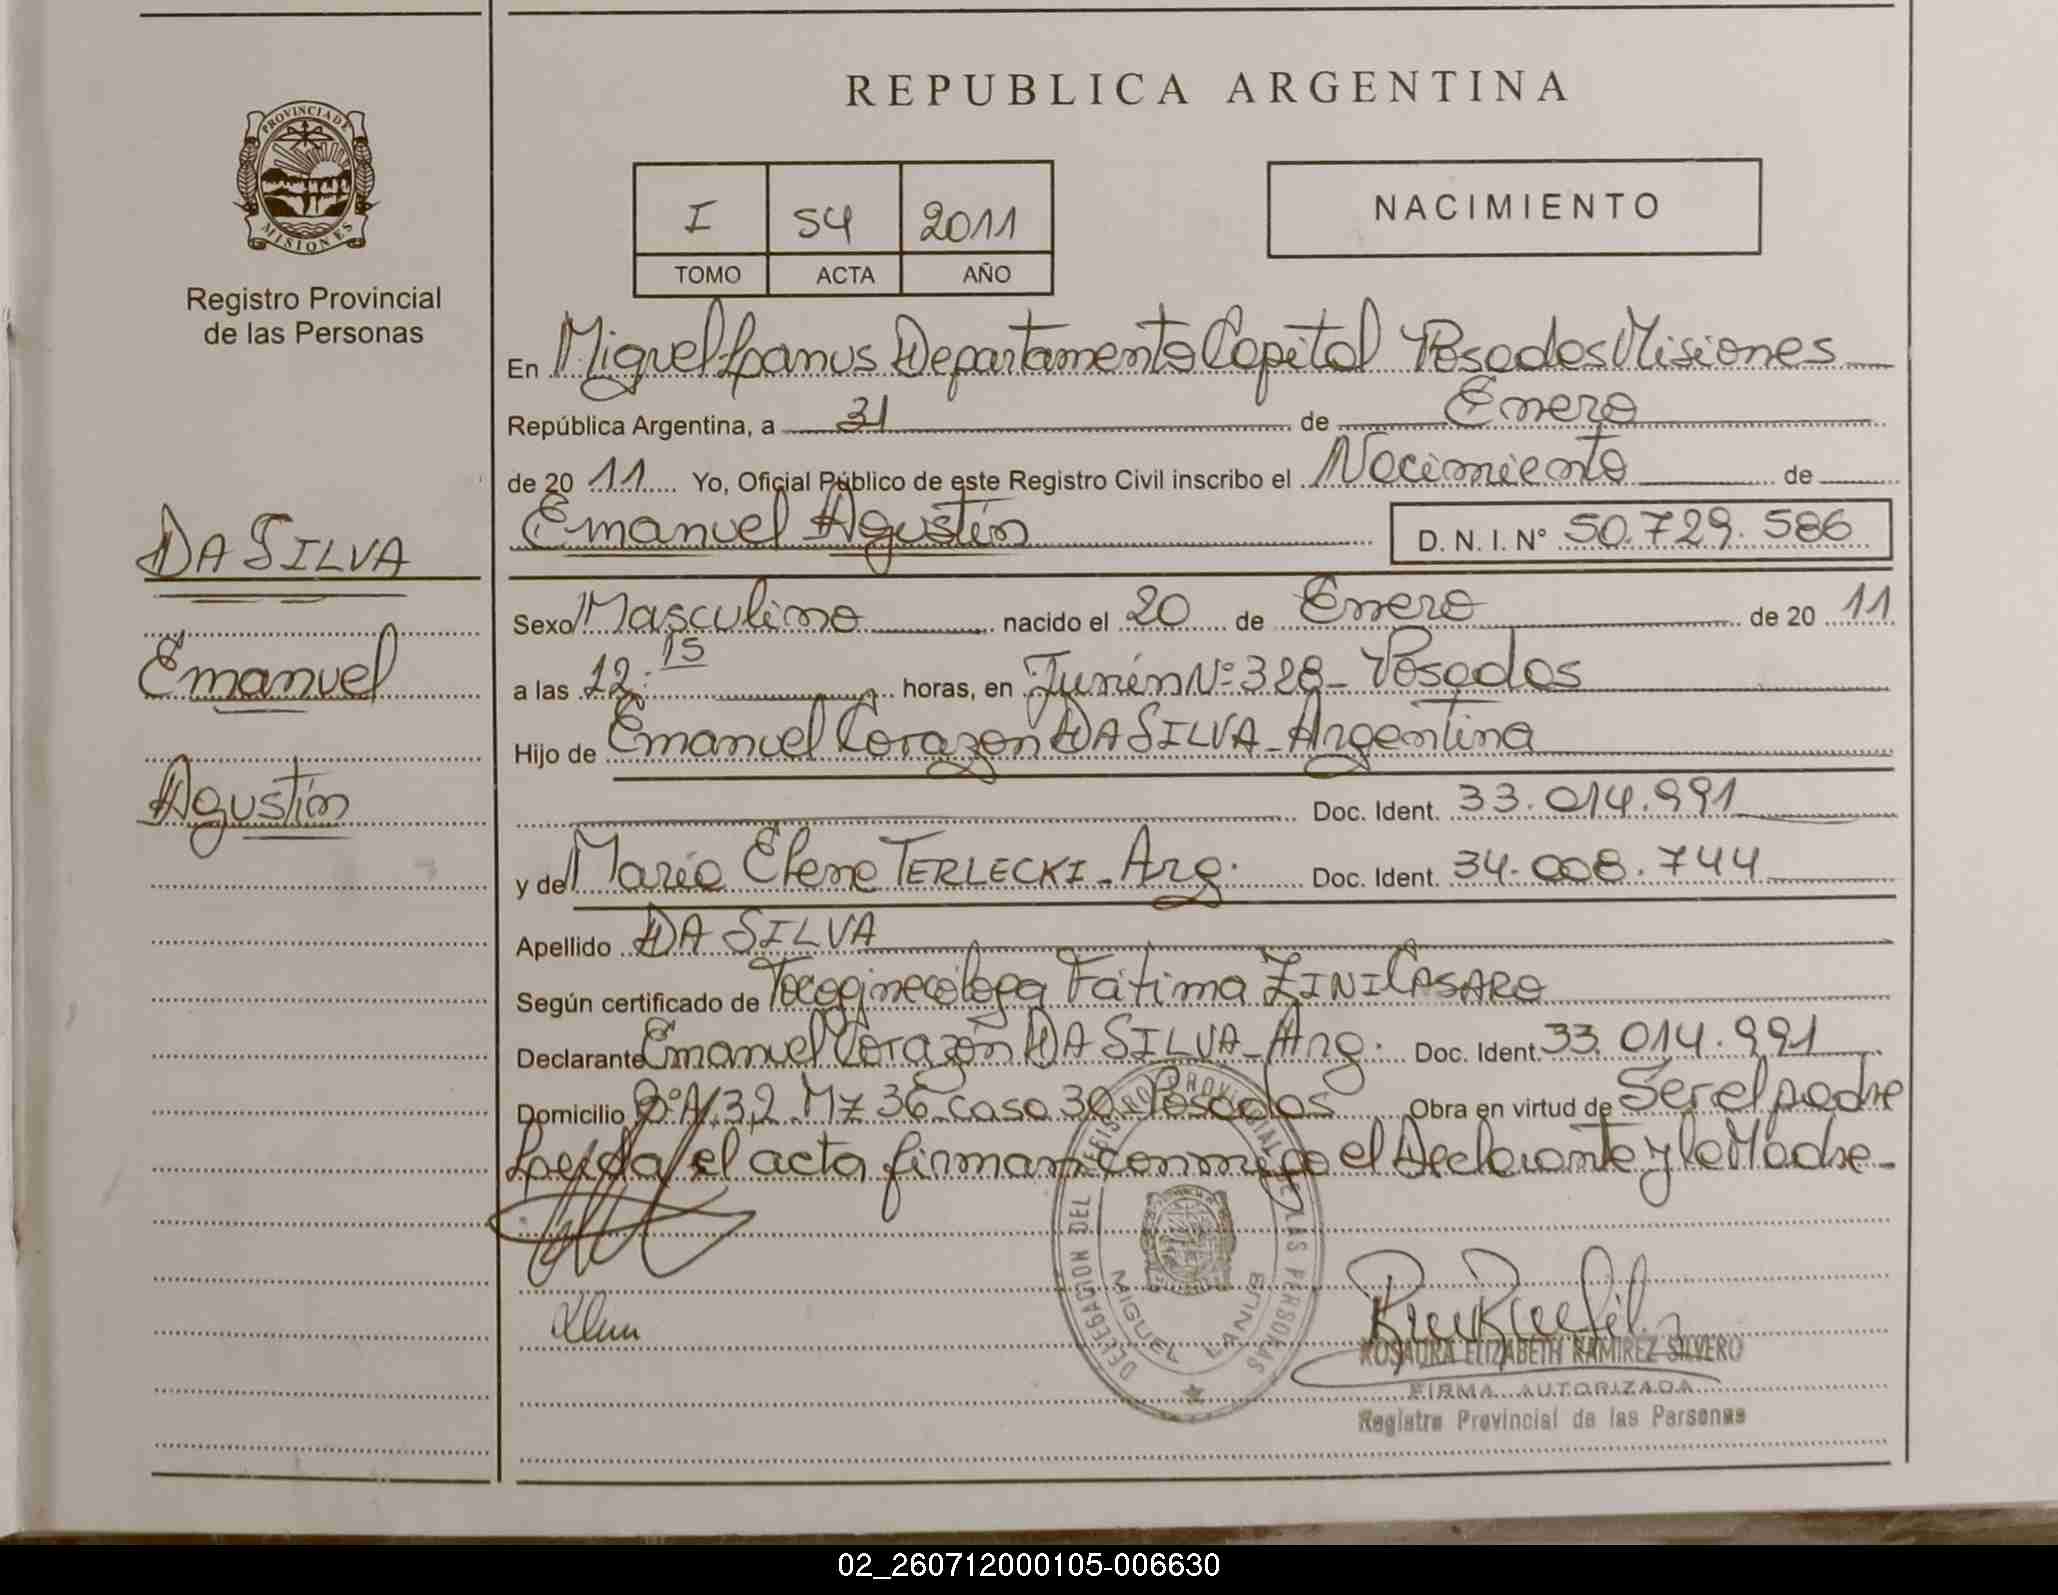 REPUBLICA ARGENTINA
PROVINCIA DE MISIONES
Registro Provincial
de las Personas
I 54 2011
TOMO ACTA AÑO
NACIMIENTO
En Miguel Lanus Departamento Capital Posadas Misiones
República Argentina, a 31 de Enero
de 20 11 Yo, Oficial Público de este Registro Civil inscribo el Nacimiento de
Emanuel Agustín D. N. I. N° 50.729.586
DA SILVA
Emanuel
Agustín
Sexo Masculino nacido el 20 de Enero de 20 11
a las 12:15 horas, en Junín Nº 328 - Posadas
Hijo de Emanuel Corazon DA SILVA - Argentina
Doc. Ident. 33.014.991
y de María Elena TERLECKI - Arg. Doc. Ident. 34.008.744
Apellido DA SILVA
Según certificado de Tocoginecóloga Fátima ZINI CASARO
Declarante Emanuel Corazón DA SILVA - Arg. Doc. Ident. 33.014.991
Domicilio 32 Mz 36 casa 30 Posadas Obra en virtud de Ser el padre
Leída el acta firman conmigo el Declarante y la Madre -
DELEGACION DEL REGISTRO PROVINCIAL DE LAS PERSONAS
MIGUEL LANUS
ROSAURA ELIZABETH RAMIREZ SILVERO
FIRMA AUTORIZADA
Registro Provincial de las Personas
02_260712000105-006630